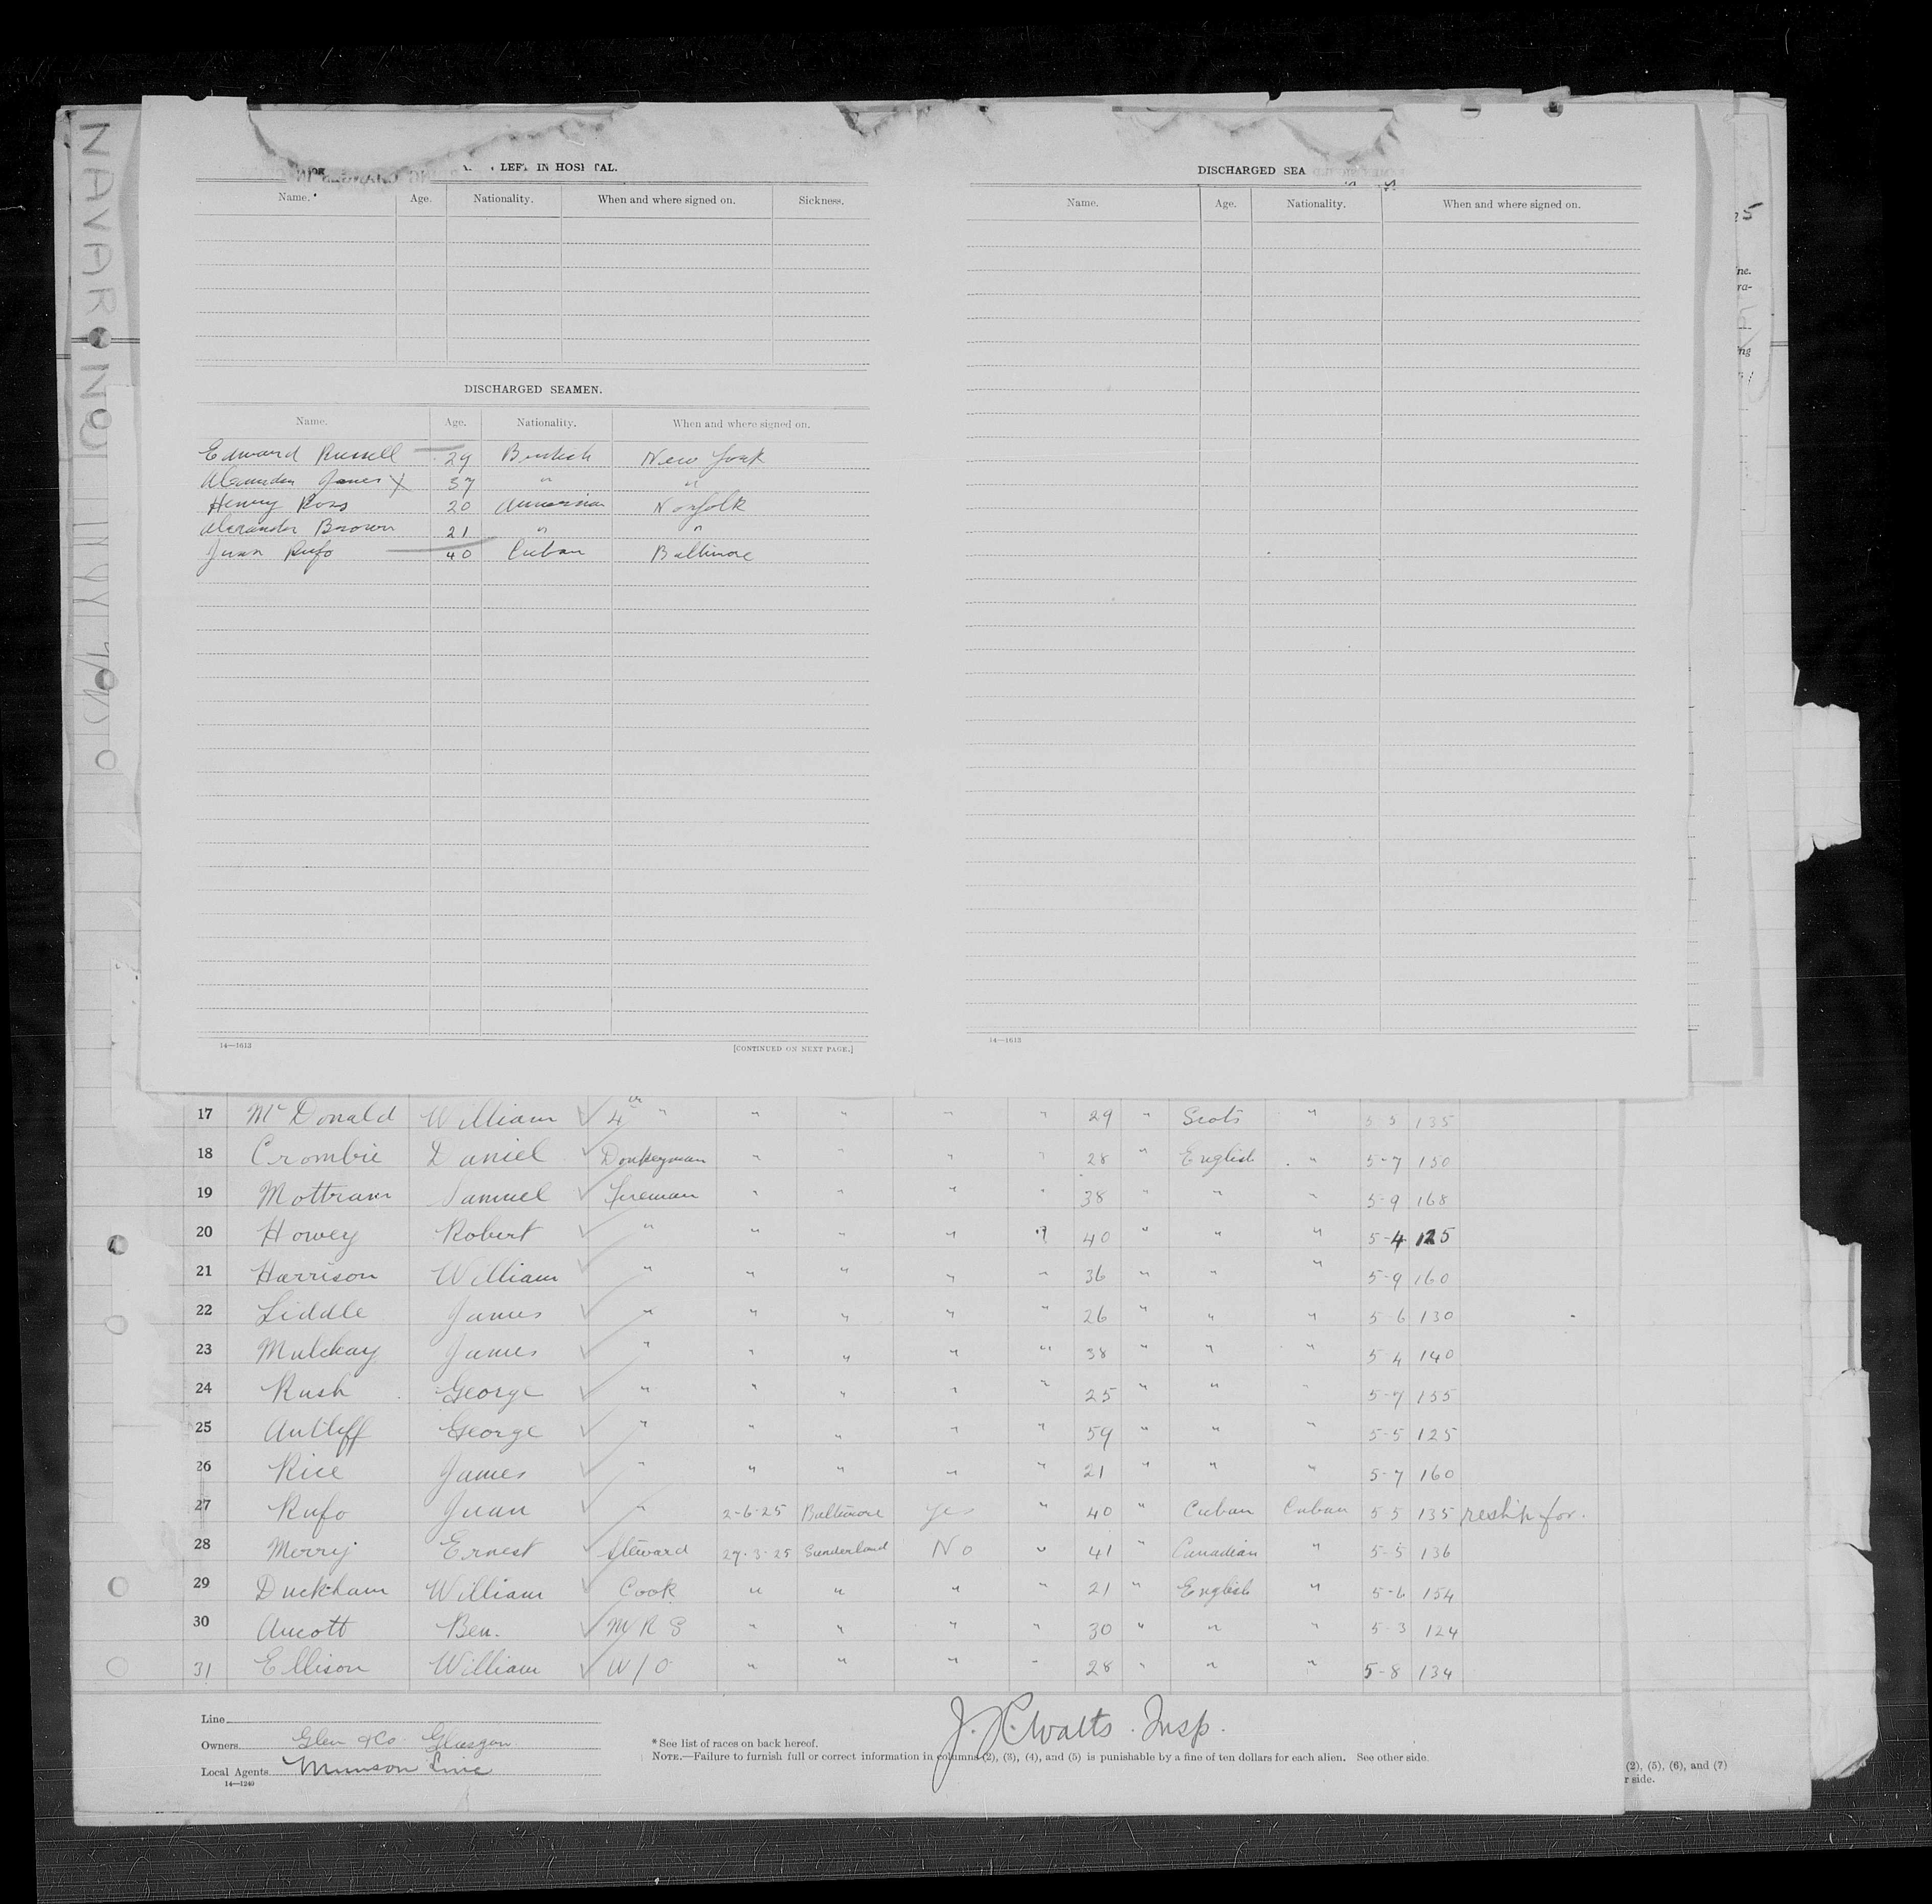 LEFT IN HOSPITAL.
Name. Age. Nationality. When and where signed on. Sickness.
DISCHARGED SEAMEN.
Name. Age. Nationality. When and where signed on.
Edward Russell 29 British New York
Alexander James X 37 " "
Henry Ross 20 American Norfolk
Alexander Brown 21 " "
Juan Rufo 40 Cuban Baltimore
14—1613 [CONTINUED ON NEXT PAGE.]
DISCHARGED SEA
Name. Age. Nationality. When and where signed on.
14—1613
17 McDonald William 4th " " " " " 29 " Scots " 5-5 135
18 Crombie Daniel Donkeyman " " " " 28 " English " 5-7 150
19 Mottram Samuel Fireman " " " " 38 " " " 5-9 168
20 Howey Robert " " " " " 40 " " " 5-4 125
21 Harrison William " " " " " 36 " " " 5-9 160
22 Liddle James " " " " " 26 " " " 5-6 130
23 Mulckay James " " " " " 38 " " " 5-4 140
24 Rush George " " " " " 25 " " " 5-7 155
25 Autliff George " " " " " 59 " " " 5-5 125
26 Rice James " " " " " 21 " " " 5-7 160
27 Rufo Juan " 2-6-25 Baltimore Yes " 40 " Cuban Cuban 5-5 135 reship for.
28 Merry Ernest Steward 27-3-25 Sunderland No " 41 " Canadian " 5-5 136
29 Duckham William Cook " " " " 21 " English " 5-6 154
30 Aucott Ben. M R S " " " " 30 " " " 5-3 124
31 Ellison William W/O " " " " 28 " " " 5-8 134
Line
Owners Glen & Co. Glasgow
Local Agents Munson Line
14—1240
J. K. Watts. Insp.
*See list of races on back hereof.
NOTE.—Failure to furnish full or correct information in columns (2), (3), (4), and (5) is punishable by a fine of ten dollars for each alien. See other side.
(2), (5), (6), and (7)
r side.